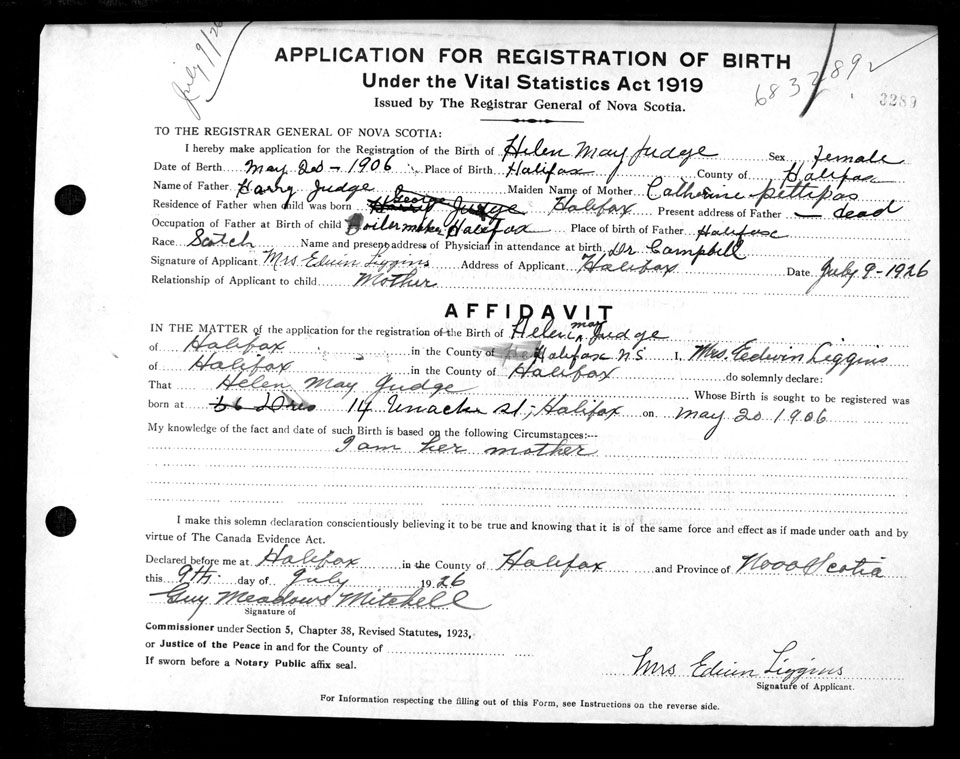 July 9/26
APPLICATION FOR REGISTRATION OF BIRTH
Under the Vital Statistics Act 1919
Issued by The Registrar General of Nova Scotia.
6832892
3289
TO THE REGISTRAR GENERAL OF NOVA SCOTIA:
I hereby make application for the Registration of the Birth of Helen May Judge Sex Female
Date of Berth May 20 - 1906 Place of Birth Halifax County of Halifax
Name of Father Harry Judge Maiden Name of Mother Catherine Pettipas
George
Residence of Father when child was born Harry Judge Halifax Present address of Father — dead
Occupation of Father at Birth of child Boilermaker, Halifax Place of birth of Father Halifax
Race Scotch Name and present address of Physician in attendance at birth Dr. Campbell
Signature of Applicant Mrs Edwin Liggins Address of Applicant Halifax Date July 9-1926
Relationship of Applicant to child Mother
AFFIDAVIT
IN THE MATTER of the application for the registration of the Birth of Helen May Judge
of Halifax in the County of Halifax N.S. I, Mrs. Edwin Liggins
of Halifax in the County of Halifax do solemnly declare:
That Helen May Judge Whose Birth is sought to be registered was
born at 14 Uniacke St, Halifax on May 20 1906
My knowledge of the fact and date of such Birth is based on the following Circumstances:--
I am her mother
I make this solemn declaration conscientiously believing it to be true and knowing that it is of the same force and effect as if made under oath and by
virtue of The Canada Evidence Act.
Declared before me at Halifax in the County of Halifax and Province of Nova Scotia
this 9th day of July 1926
Guy Meadows Mitchell
Signature of
Commissioner under Section 5, Chapter 38, Revised Statutes, 1923,
or Justice of the Peace in and for the County of
If sworn before a Notary Public affix seal.
Mrs Edwin Liggins
Signature of Applicant.
For Information respecting the filling out of this Form, see Instructions on the reverse side.